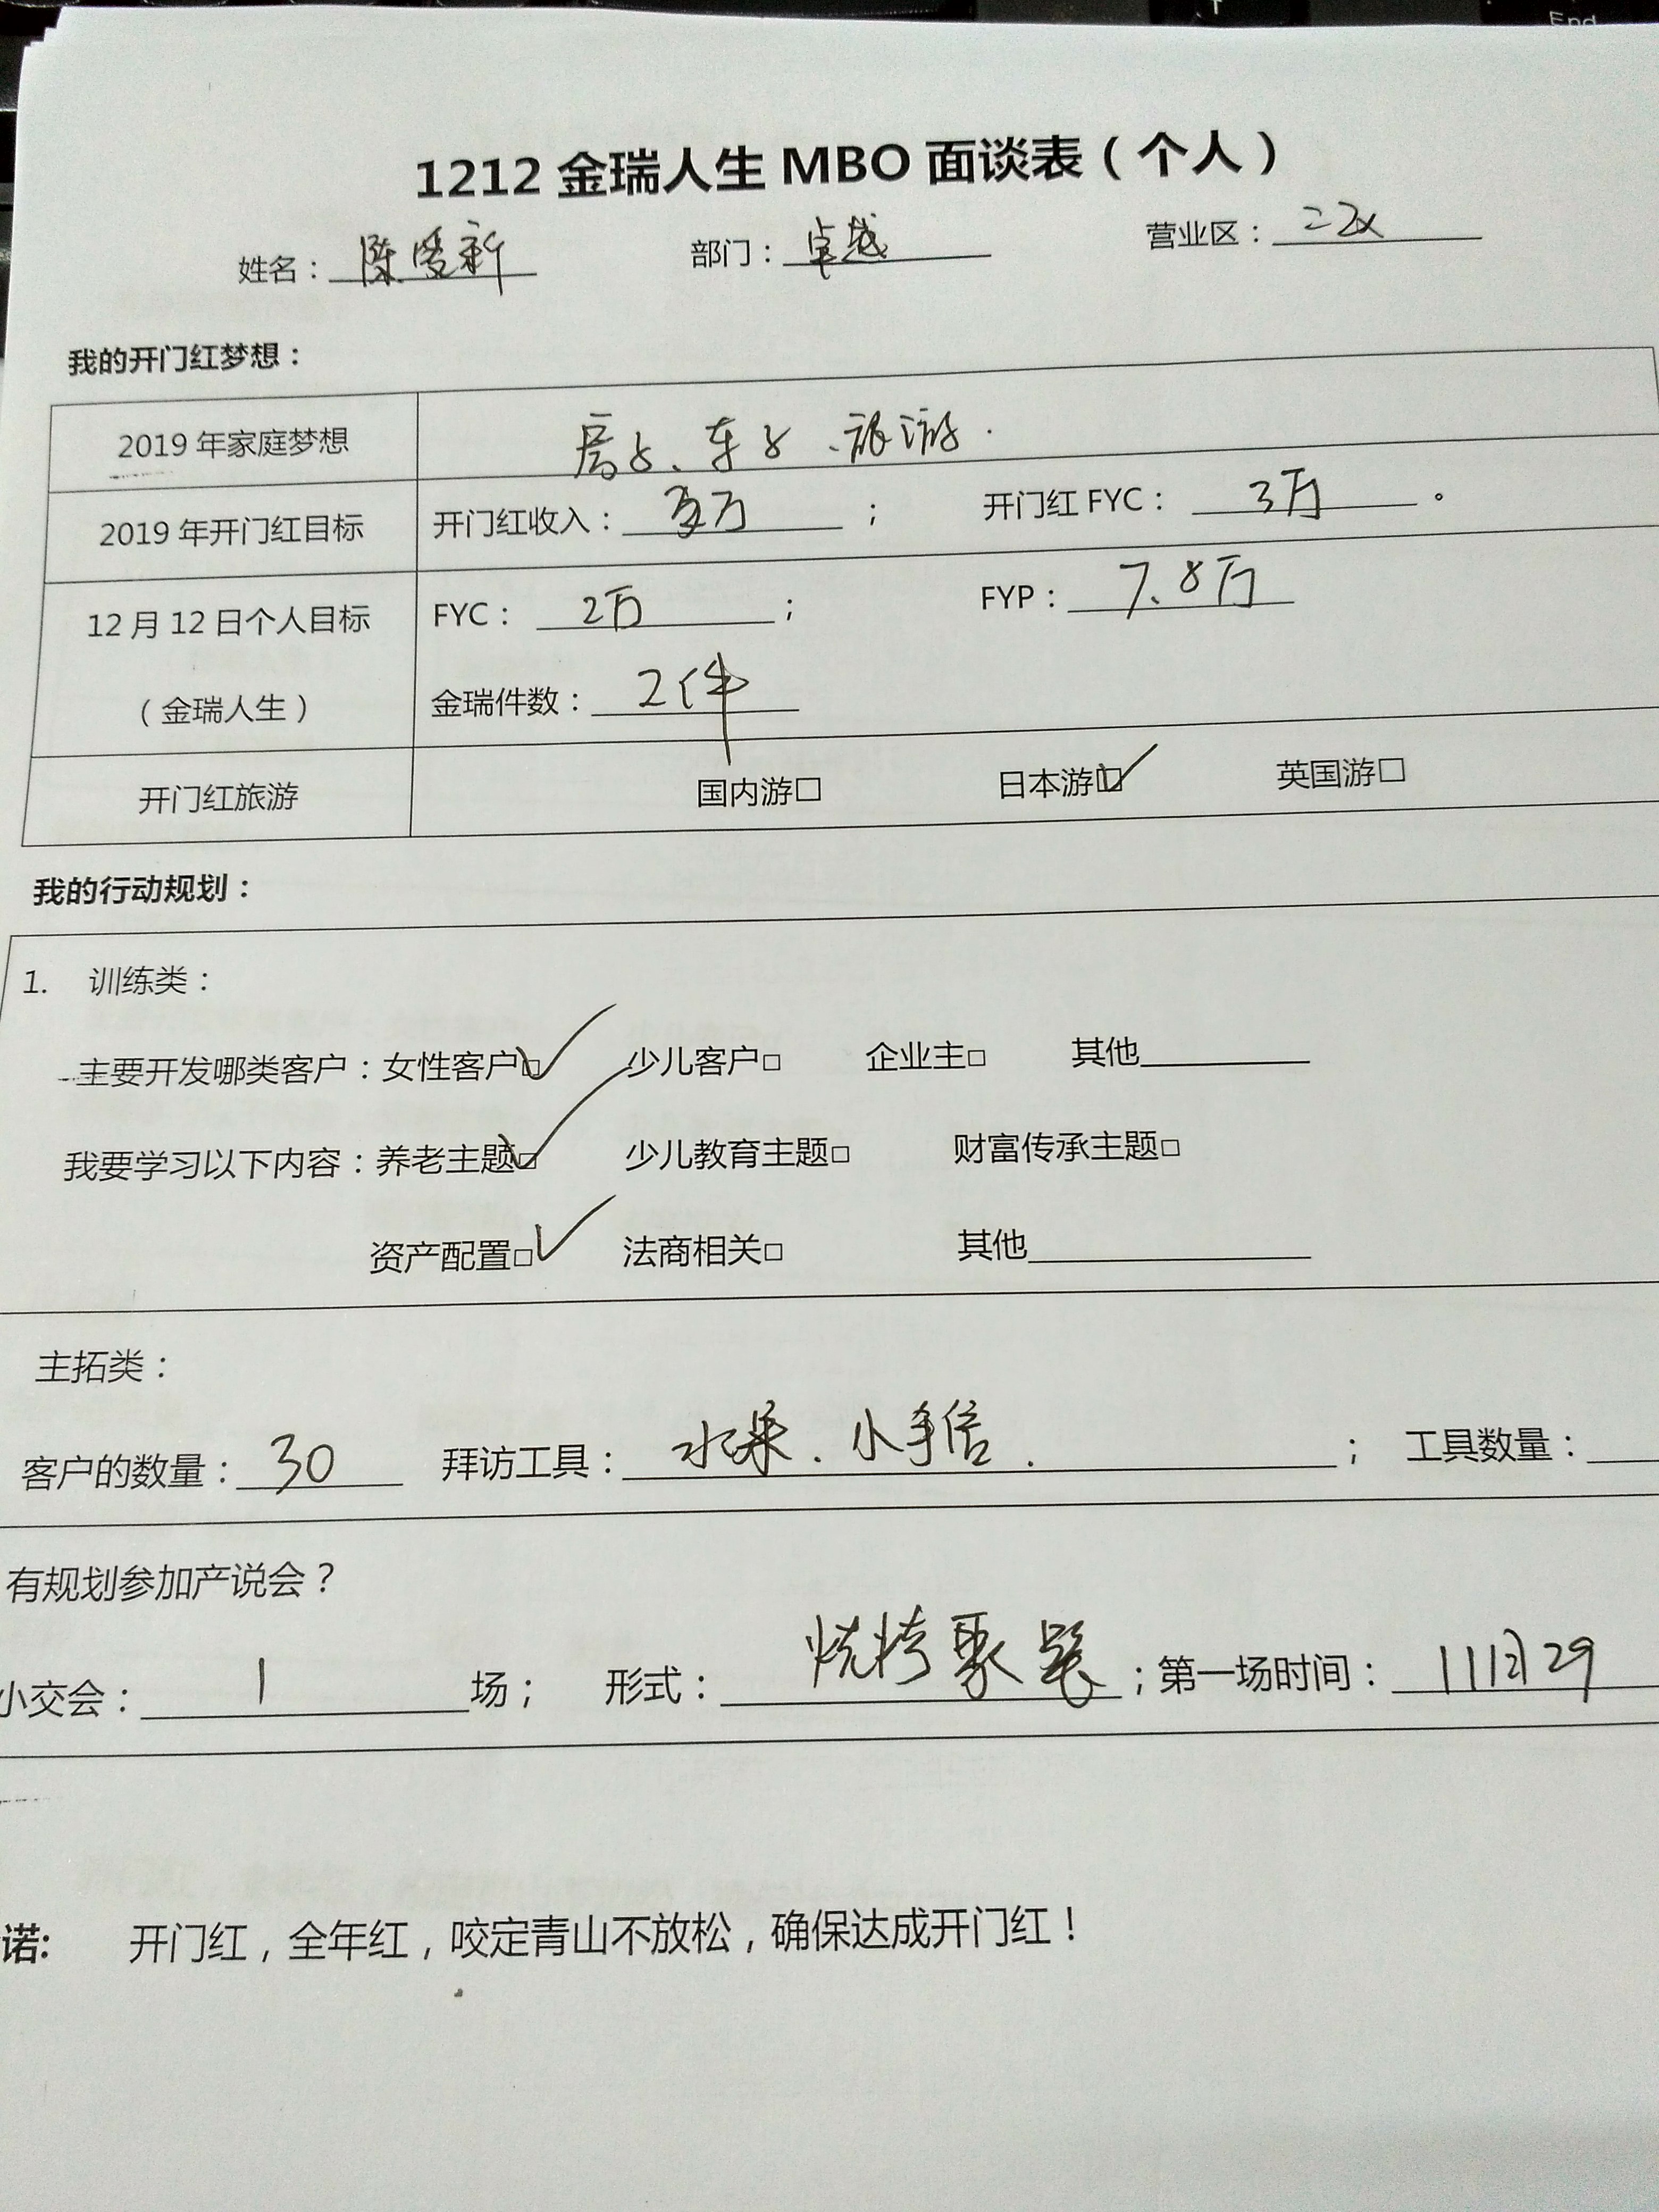 End
1212 金瑞人生 MBO 面谈表（个人）
姓名：陈爱新 部门：卓越 营业区：二区
我的开门红梦想：
2019 年家庭梦想 房子、车子、旅游.
2019 年开门红目标 开门红收入：百万； 开门红 FYC：3万。
12 月 12 日个人目标 FYC：2万； FYP：7.8万
（金瑞人生） 金瑞件数：2件
开门红旅游 国内游□ 日本游☑ 英国游□
我的行动规划：
1. 训练类：
主要开发哪类客户：女性客户☑ 少儿客户□ 企业主□ 其他
我要学习以下内容：养老主题☑ 少儿教育主题□ 财富传承主题□
资产配置☑ 法商相关□ 其他
主拓类：
客户的数量：30 拜访工具：水果.小手信.； 工具数量：
有规划参加产说会？
小交会：1场； 形式：烧烤聚餐；第一场时间：11月29
诺: 开门红，全年红，咬定青山不放松，确保达成开门红！